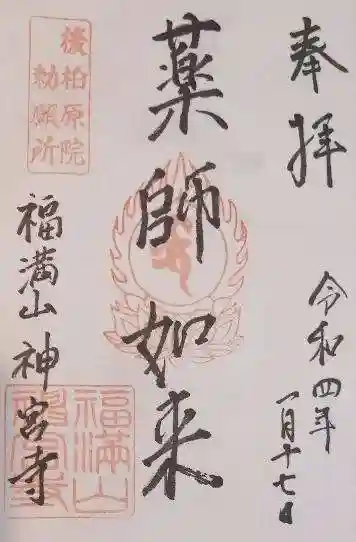 奉拝
令和四年
一月十七日
薬師如来
後柏原院
勅願所
福満山 神宮寺
福満山
神宮寺